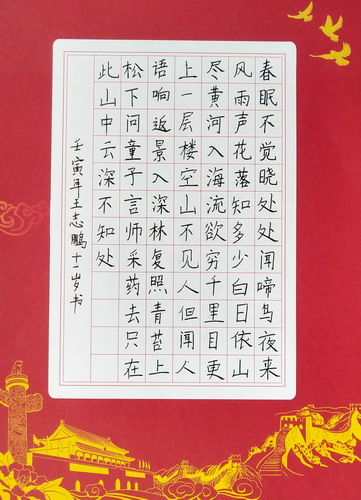 春眠不觉晓处处闻啼鸟夜来
风雨声花落知多少白日依山
尽黄河入海流欲穷千里目更
上一层楼空山不见人但闻人
语响返景入深林复照青苔上
松下问童子言师采药去只在
此山中云深不知处
壬寅年王志鹏十一岁书